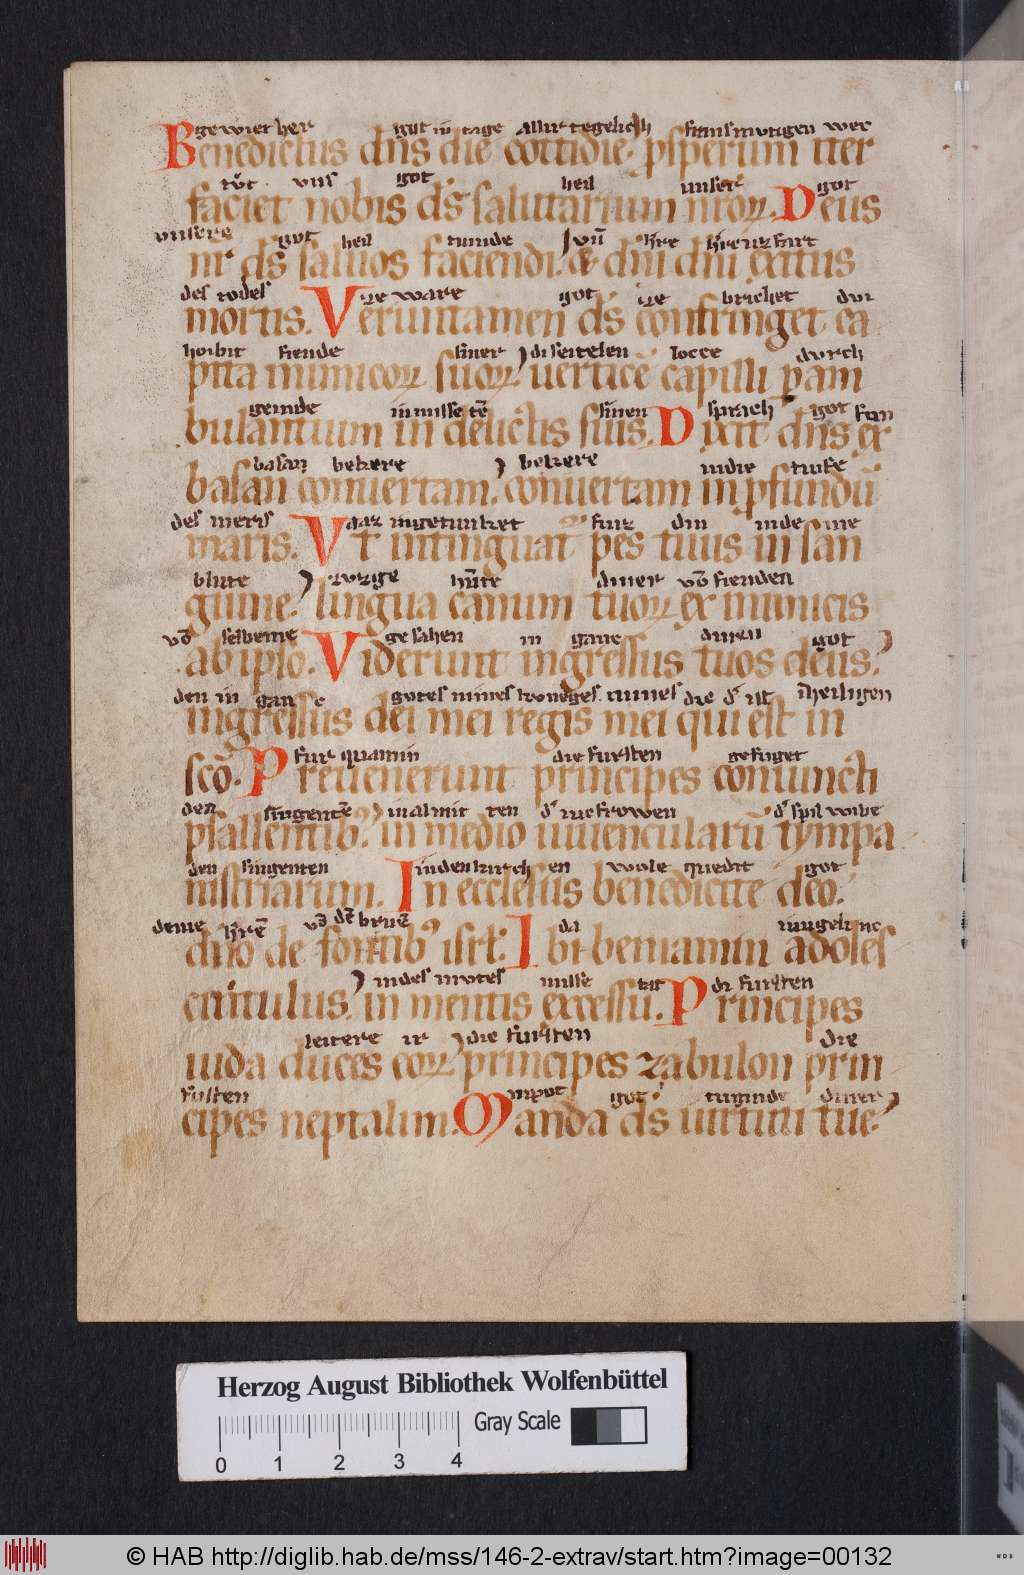 gewiet her got in tage allir tegelich samsmutigen wec
Benedictus dñs die cottidie. psperum iter
tůt. vns got heil unser got
faciet nobis ds̄ salutarium nr̄oꝝ. Deus
vnsere got heil tuinde vn̄ hre
nr̄ ds̄ saluos faciendi. & dn̄i dn̄i exitus
des todes ware got brichet
mortis. Veruntamen ds̄ confringet ca
hoibit fiende siner di seitelen locce durch
pita inimicoꝝ suoꝝ. uerticē capilli p̱am
geinde in misse tē sinen sprach got fon
bulantium in delictis suis. Dixit dñs ex
basan bekere bekere indie tiufe
basan conuertam. conuertam in ꝓfundū
des meris ingetunket fuiz din inde
maris. Vt intinguat pes tuus in san
blute zvnge diner vō fienden
guine. lingua canum tuoꝝ ex inimicis
vō selbeme gesahen in gane got
ab ipso. Viderunt ingressus tuos deus.
den in gan gotes mines koneges die ist heiligen
ingressus dei mei regis mei qui est in
fur quamin die fursten gefuget
scō. Preuenerunt principes coniuncti
den singentē in almit ten iuncfrowen spil wibe
psallentib᷒. in medio iuuencularū tympa
den singenten in den kirch en wole quedit got
nistriarum. In ecclesiis benedicite deo.
deme hrē vō dē bruñē da iungelinc
dn̄o de fontib᷒ isrl. Ibi beniamin adoles
in des mutes misse tat di fursten
centulus. in mentis excessu. Principes
leitere ir die fursten die
iuda duces eoꝝ principes zabulon prin
fursten got tuginde diner
cipes neptalim. Manda ds̄ uirtuti tue.
Herzog August Bibliothek Wolfenbüttel
Gray Scale
0 1 2 3 4
© HAB http://diglib.hab.de/mss/146-2-extrav/start.htm?image=00132